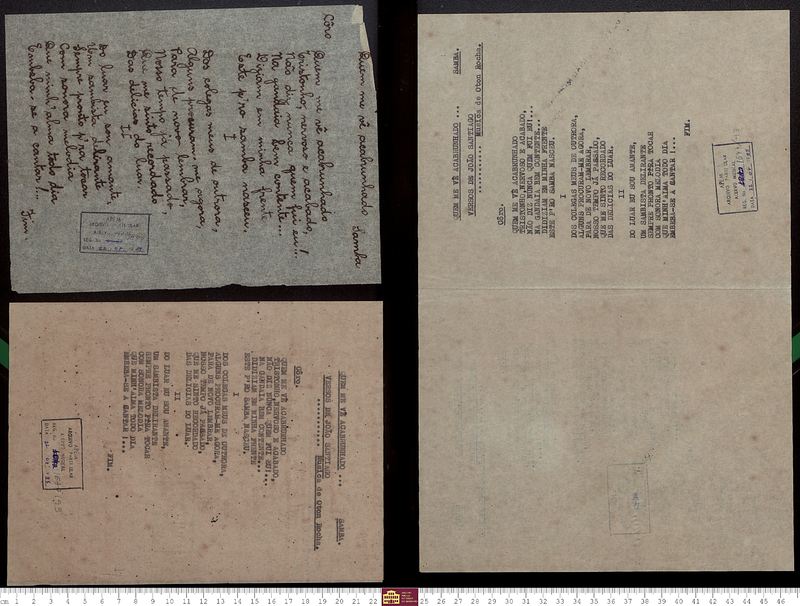 Quem me vê acabrunhado Samba
Côro
Quem me vê acabrunhado
Tristonho, nervoso e acabado,
Não diz nunca quem fui eu...!
Na gandaia bem contente...
Diziam em minha frente
Este p'ro samba nasceu.
I
Dos colegas meus de outrora,
Alguns procuram-me agora,
Para de novo lembrar,
Nosso tempo já passado,
Que me sinto recordado
Das delicias do luar.
II
Do luar eu sou amante,
Um sambista delirante
Sempre pronto p'ra tocar
Com sonora melodia
Que minh'alma todo dia
Embeba-se a cantar!...
Fim.
QUEM ME VÊ ACABRUNHADO ... SAMBA.
VERSOS DE JOÃO SANTIAGO
........... Musica de Oton Rocha.
Côro.
QUEM ME VÊ ACABRUNHADO
TRISTONHO,NERVOSO E ACABADO,
NÃO DIZ NUNCA QUEM FUI EU!...
NA GANDAIA BEM CONTENTE...
DIZIAM EM MINHA FRENTE
ESTE P'RO SAMBA NASCEU.
I
DOS COLEGAS MEUS DE OUTRORA,
ALGUNS PROCURAM-ME AGORA,
PARA DE NOVO LEMBRAR,
NOSSO TEMPO JÁ PASSADO,
QUE ME SINTO RECORDADO
DAS DELICIAS DO LUAR.
II
DO LUAR EU SOU AMANTE,
UM SAMBISTA DELIRANTE
SEMPRE PRONTO P'RA TOCAR
COM SONORA MELODIA
QUE MINH'ALMA TODO DIA
EMBEBA-SE A CANTAR !...
FIM.
QUEM ME VÊ ACABRUNHADO ... SAMBA.
VERSOS DE JOÃO SANTIAGO
........... Musica de Oton Rocha.
Côro.
QUEM ME VÊ ACABRUNHADO
TRISTONHO,NERVOSO E ACABADO,
NÃO DIZ NUNCA QUEM FUI EU!...
NA GANDAIA BEM CONTENTE...
DIZIAM EM MINHA FRENTE
ESTE P'RO SAMBA NASCEU.
I
DOS COLEGAS MEUS DE OUTRORA,
ALGUNS PROCURAM-ME AGORA,
PARA DE NOVO LEMBRAR,
NOSSO TEMPO JÁ PASSADO,
QUE ME SINTO RECORDADO
DAS DELICIAS DO LUAR.
II
DO LUAR EU SOU AMANTE,
UM SAMBISTA DELIRANTE
SEMPRE PRONTO P'RA TOCAR
COM SONORA MELODIA
QUE MINH'ALMA TODO DIA
EMBEBA-SE A CANTAR !...
FIM.
cm 1 2 3 4 5 6 7 8 9 10 11 12 13 14 15 16 17 18 19 20 21 22 25 26 27 28 29 30 31 32 33 34 35 36 37 38 39 40 41 42 43 44 45 46